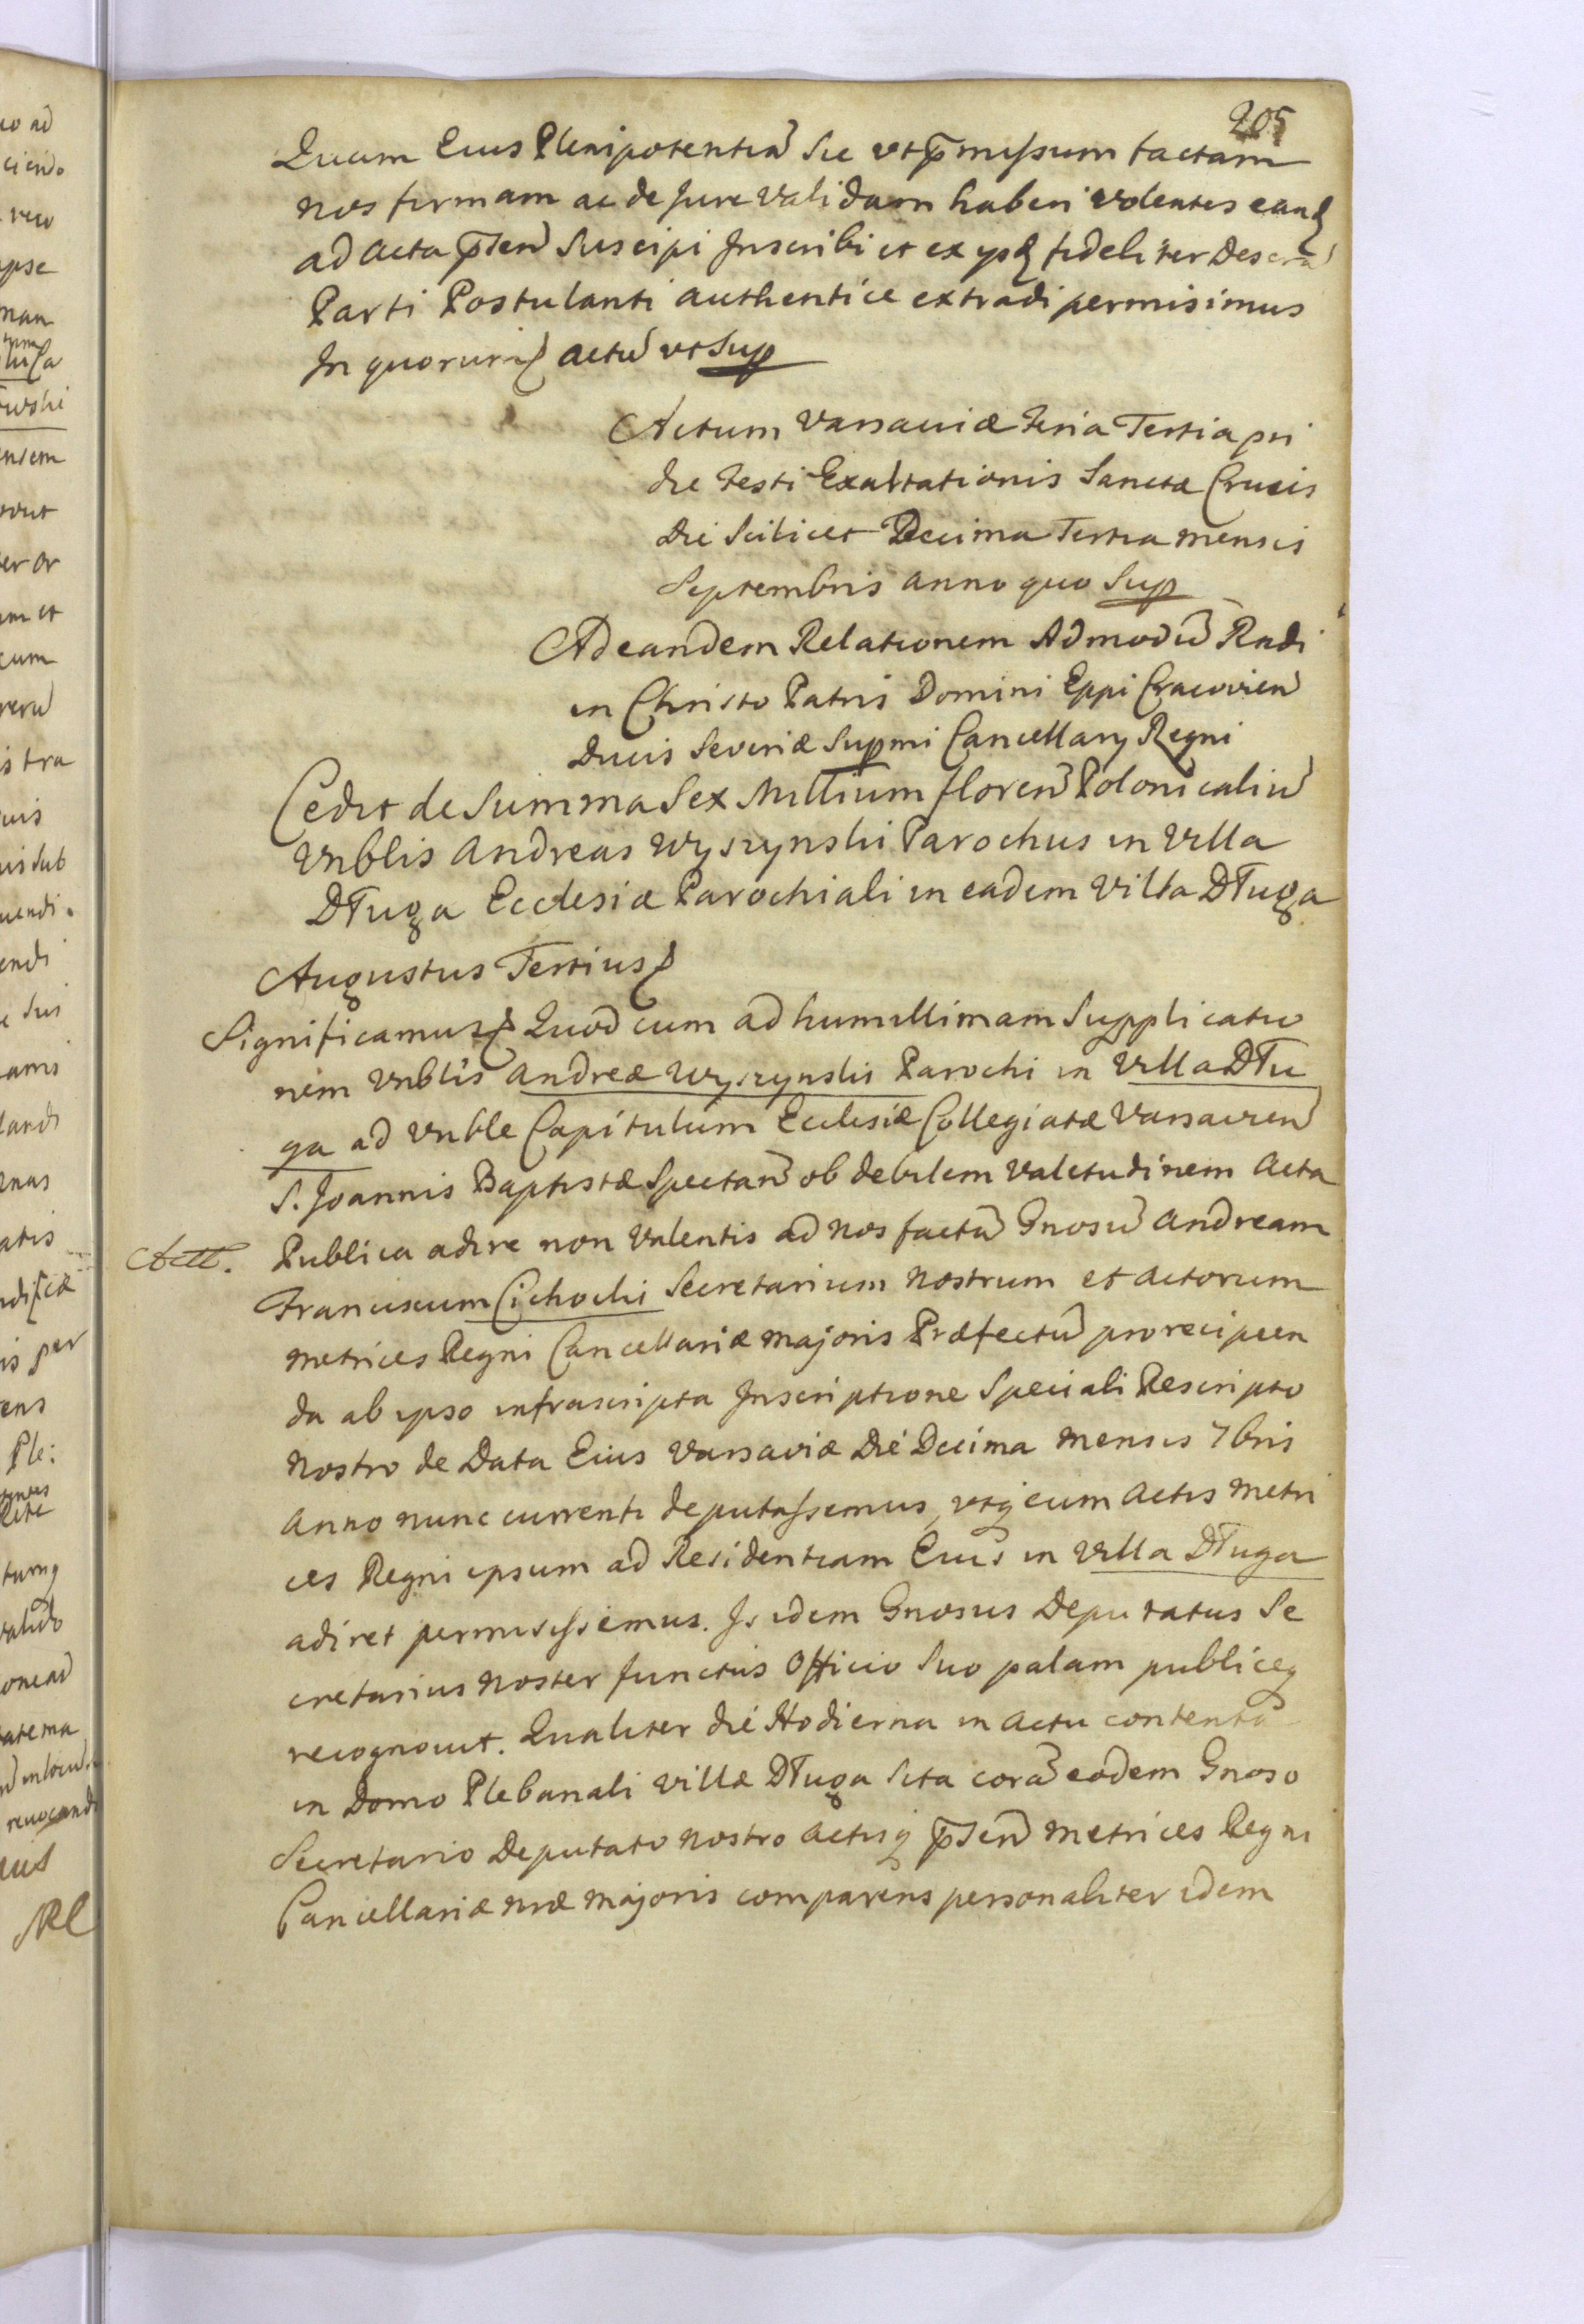 205
Quam Eius Plenipotentiã Sic vt p̃missum factam
nos firmam ac de Jure validam haberi volentes eanq
ad acta p̃sen Suscipi Inscribi et ex ysq fideliter Descri
Parti Postulanti authentice extradi permisimus
In quorum actũ vt Sup
Actum Varsaviæ Feria Tertia pri
die Festi Exaltationis Sanctæ Crucis
Die Scilicet Decima Tertia mensis
Septembris anno quo Sup
Ad eandem Relationem Admodũ Rndi
in Christo Patris Domini Eppi Cracovien
Ducis Severiæ Supmi Cancellary Regni
Cedit de Summa Sex Millium floren Polonicaliũ
Vnblis Andreas Wyszynski Parochus in Villa
Długa Ecclesiæ Parochiali in eadem Villa Długa
Augustus Tertius
Significamus Quod cum ad humillimam Supplicatio
nem Vnblis Andreæ Wyszynski Parochi in Villa Dłu
ga ad Vnble Capitulum Ecclesiæ Collegiatæ Varsavien
S. Joannis Baptistæ Spectañ ob debilem valetudinem Acta
Publica adire non Valentis ad nos factã Gnosũ Andream
Franciscum Cichocki Secretarium Nostrum et Actorum
Metrices Regni Cancellariæ Majoris Præfectũ pro recipien
da ab ipso infrascripta Inscriptione Speciali Rescripto
Nostro de Data Eius Varsaviæ Die Decima Mensis 7bris
Anno nunc currenti deputassemus, vtq cum Actis Metri
ces Regni ipsum ad Residentiam Eius in Villa Długa
adiret permisissemus. Is idem Gnosus Deputatus Se
cretarius Noster functus Officio Suo palam publiceq
recognovit. Qualiter die Hodierna in Actu contenta
in Domo Plebanali Villæ Długa Sita corã eodem Gnoso
Secretario Deputato Nostro Actisq p̃sen Metrices Regni
Cancellariæ nræ Majoris comparens personaliter idem
Actt.